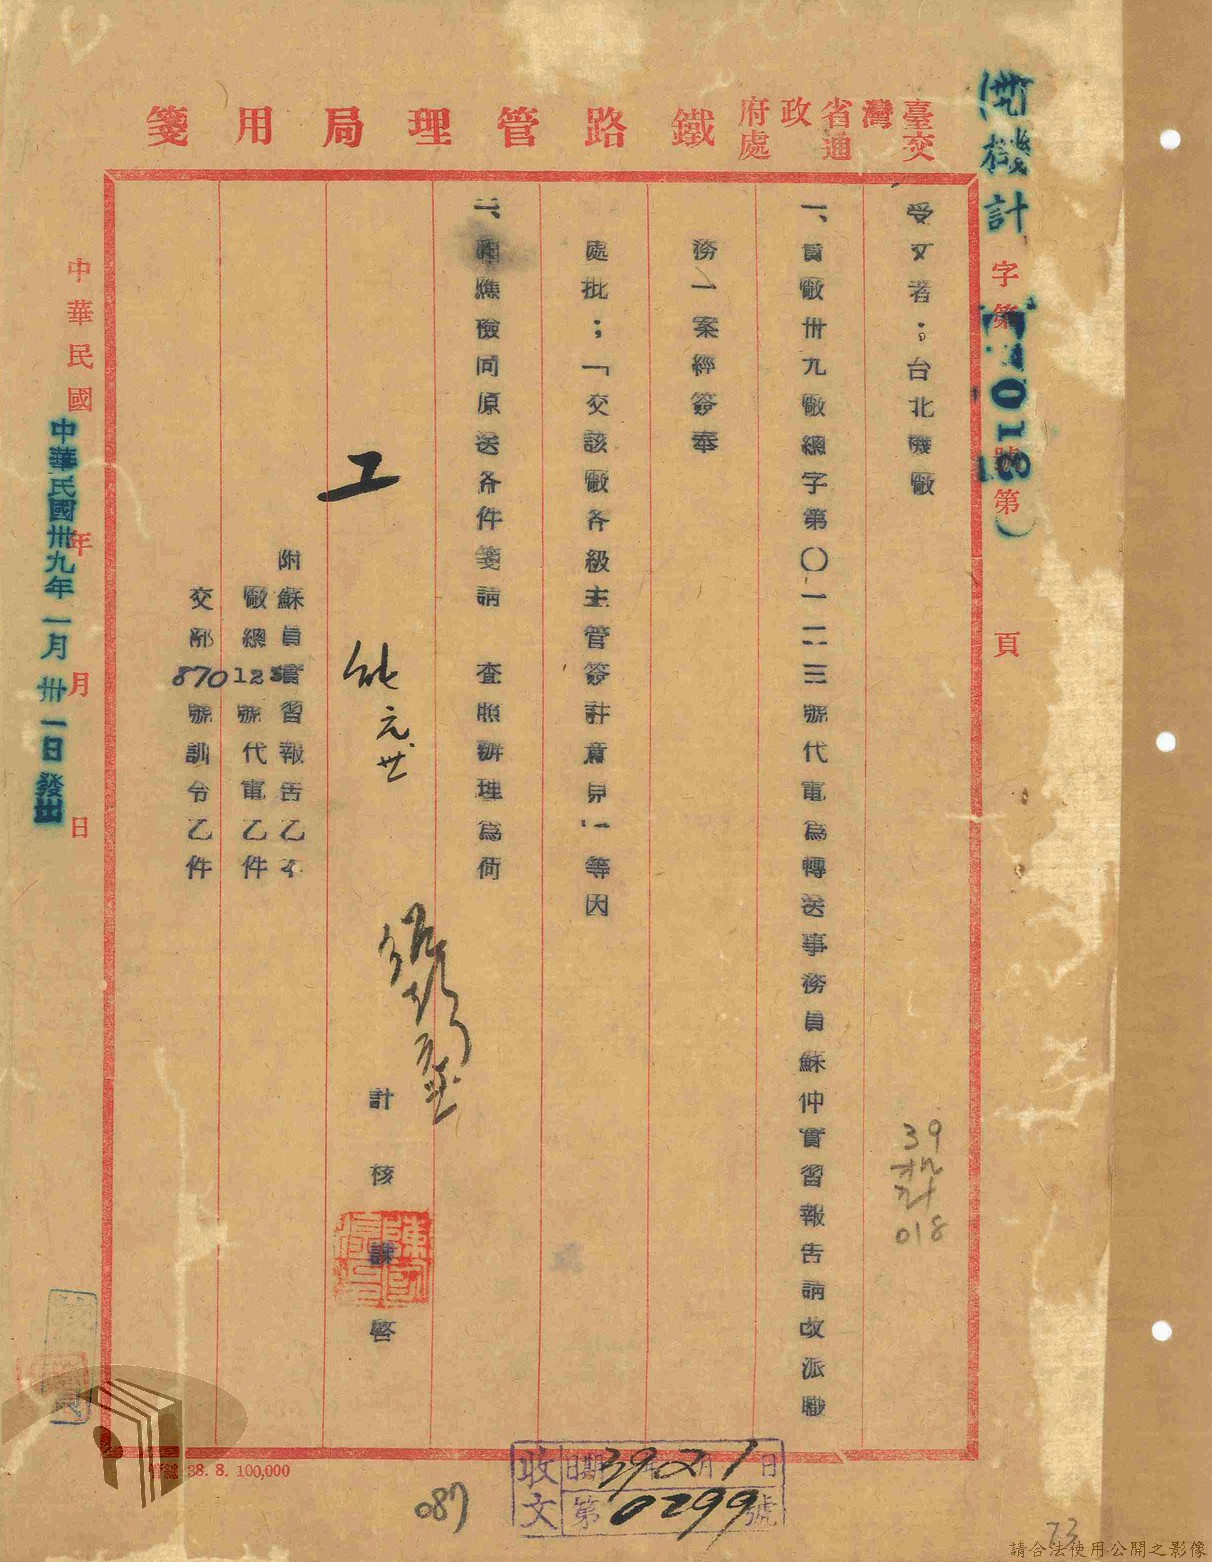 臺灣省政府交通處鐵路管理局用箋
機計字第
號第
頁
受文者；台北機廠
一、貴廠卅九廠總字第〇一二三號代電為轉送事務員蘇仲實習報告請改派職
務一案經簽奉
處批；「交該廠各級主管簽註意見」等因
二、相應檢同原送各件箋請　查照辦理為荷
工
計核課　啓
附蘇員實習報告乙本
廠總123號代電乙件
交部870號訓令乙件
中華民國　年　月　日
中華民國卅九年一月卅一日發出
39
機計
018
收文
日期39年2月1日
第0299號
38. 8. 100,000
087
73
請合法使用公開之影像